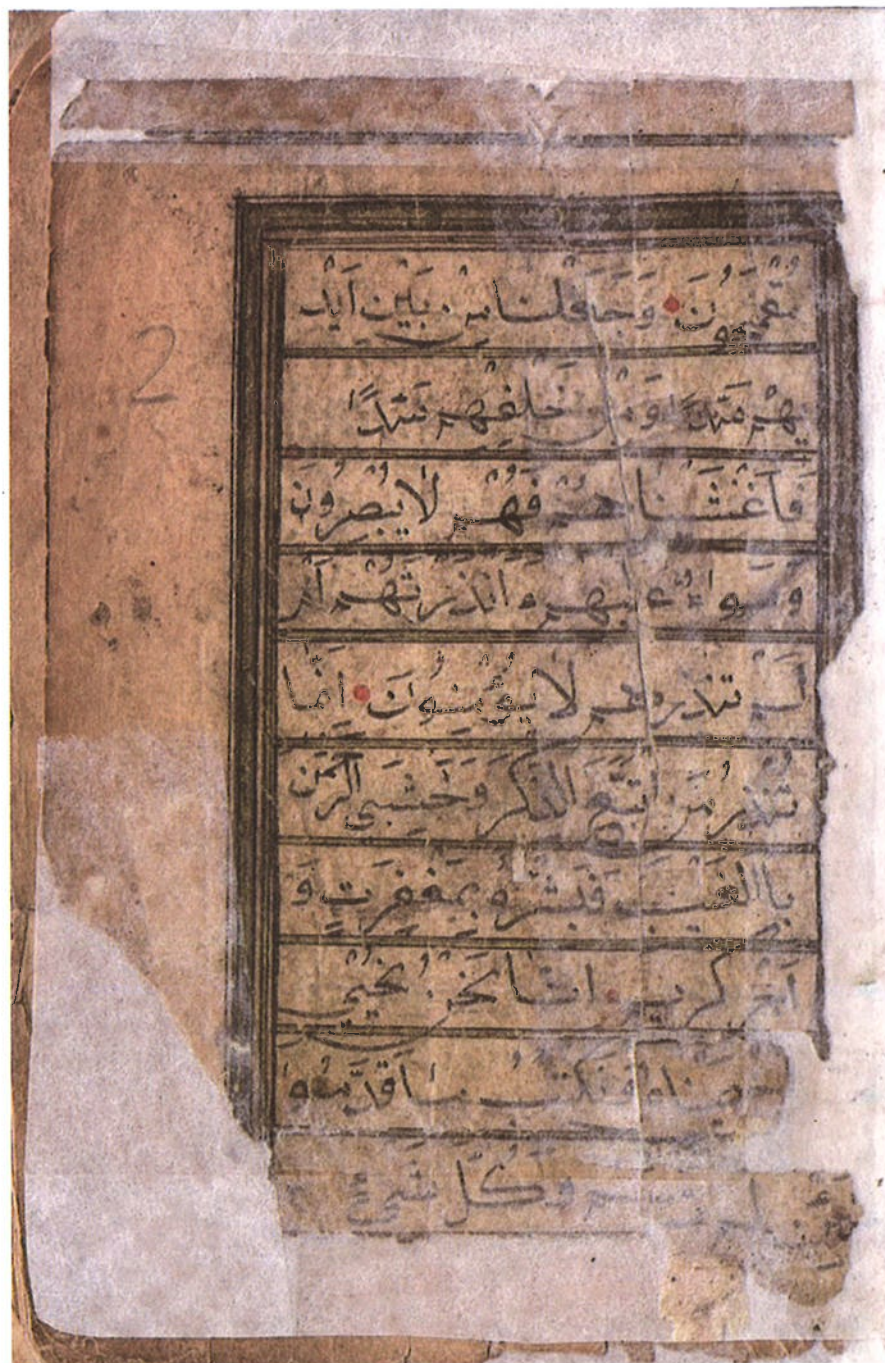 2
مُقْمَحُونَ وَجَعَلْنَا مِنْ بَيْنِ اَيْدِ
يْهِمْ سَدًّا وَمِنْ خَلْفِهِمْ سَدًّا
فَاَغْشَيْنَا هُمْ فَهُمْ لَا يُبْصِرُونَ
وَسَوَاءٌ عَلَيْهِمْ ءَاَنْذَرْتَهُمْ اَمْ
لَمْ تُنْذِرْهُمْ لَا يُؤْمِنُونَ اِنَّمَا
تُنْذِرُ مَنِ اتَّبَعَ الذِّكْرَ وَخَشِيَ الرَّحْمٰنَ
بِاالْغَيْبِ فَبَشِّرْهُ بِمَغْفِرَتٍ وَ
اَجْرٍ كَرِيمٍ اِنَّا نَحْنُ نُحْيِي
وَنَكْتُبُ مَا قَدَّمُوا
وَكُلَّ شَيْءٍ